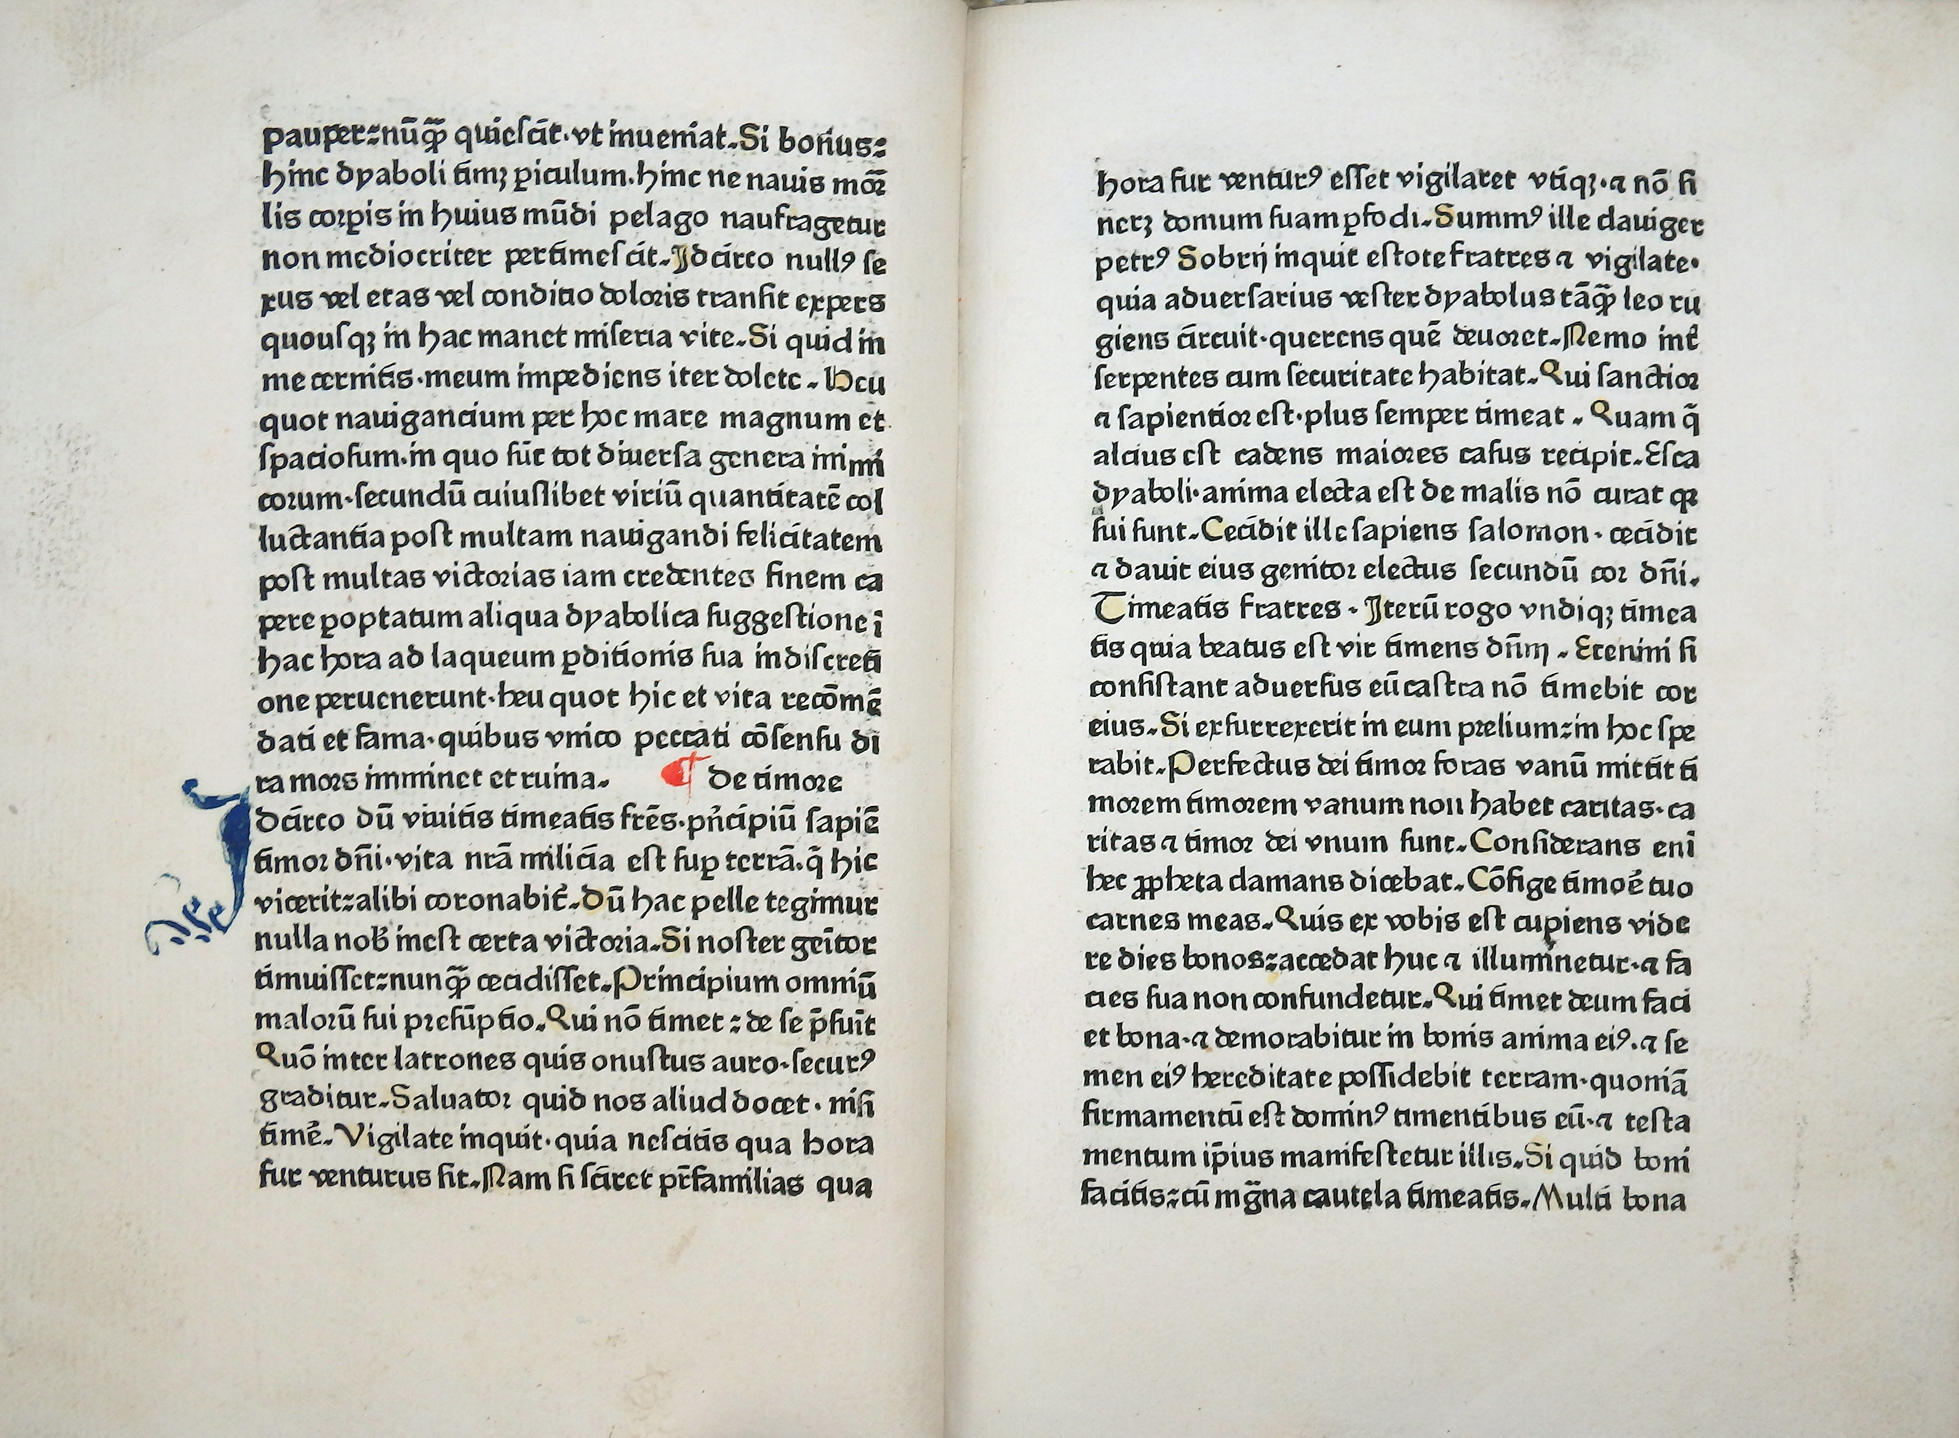 pauper:nūq̄ꝫ quiescit·vt inueniat.Si bonus:
hinc dyaboli timꝫ ꝑiculum.hinc ne nauis mor̄
lis corꝑis in huius mūdi pelago naufragetur
non mediocriter pertimescit.Idcirco nullꝰ se
xus vel etas vel conditio doloris transit expers
quousqꝫ in hac manet miseria vite.Si quid in
me cernitis·meum impediens iter dolete.Heu
quot nauigancium per hoc mare magnum et
spaciosum·in quo sūt tot diuersa genera inimi
corum·secundū cuiuslibet viriū quantitatē col
luctantia post multam nauigandi felicitatem
post multas victorias iam credentes finem ca
pere ꝑoptatum aliqua dyabolica suggestione ī
hac hora ad laqueum ꝑditionis sua indiscreti
one peruenerunt·heu quot hic et vita recōmē
dati et fama·quibus vnico peccati cōsensu di
ra mors imminet et ruina. ¶ de timore
Idcirco dū viuitis timeatis frēs·pn̄cipiū sapiē
timor dn̄i·vita nrā milicia est suꝑ terrā.q̄ hic
vicerit:alibi coronabit̄.Dū hac pelle tegimur
nulla nob̄ inest certa victoria.Si noster geītor
timuisset:nunq̄ꝫ cecidisset.Principium omniū
malorū fui presūptio.Qui nō timet:de se p̄suīt
Quō inter latrones quis onustus auro·securꝰ
graditur.Saluator quid nos aliud docet·nisi
timē.Vigilate inquit·quia nescitis qua hora
fur venturus sit.Nam si sciret pr̄familias qua
hora fur venturꝰ esset vigilaret vtiqꝫ·⁊ nō si
neretꝫ domum suam ꝑfodi.Summꝰ ille clauiger
petrꝰ Sobrij inquit estote fratres ⁊ vigilate·
quia aduersarius vester dyabolus tāq̄ꝫ leo ru
giens circuit·querens quē deuoret.Nemo int̄
serpentes cum securitate habitat.Qui sanctior
⁊ sapientior est·plus semper timeat.Quam q̄
alcius est cadens maiores casus recipit.Esca
dyaboli·anima electa est de malis nō curat qꝛ
sui sunt.Cecidit ille sapiens salomon·cecidit
⁊ dauit eius genitor electus secundū cor dn̄i.
Timeatis fratres.Iterū rogo vndiqꝫ timea
tis quia beatus est vir timens dn̄m.Etenim si
consistant aduersus eū castra nō timebit cor
eius.Si exsurrexerit in eum prelium:in hoc spe
rabit.Perfectus dei timor foras vanū mittit ti
morem timorem vanum non habet caritas·ca
ritas ⁊ timor dei vnum sunt.Considerans enī
hec ꝓpheta clamans dicebat.Cōfige timoē tuo
carnes meas.Quis ex vobis est cupiens vide
re dies bonos:accedat huc ⁊ illuminetur·⁊ fa
cies sua non confundetur.Qui timet deum faci
et bona·⁊ demorabitur in bonis anima eiꝰ.⁊ se
men eiꝰ hereditate possidebit terram·quoniā
firmamentū est dominꝰ timentibus eū·⁊ testa
mentum ip̄ius manifestetur illis.Si quid boni
facitis:cū mḡna cautela timeatis.Multi bona